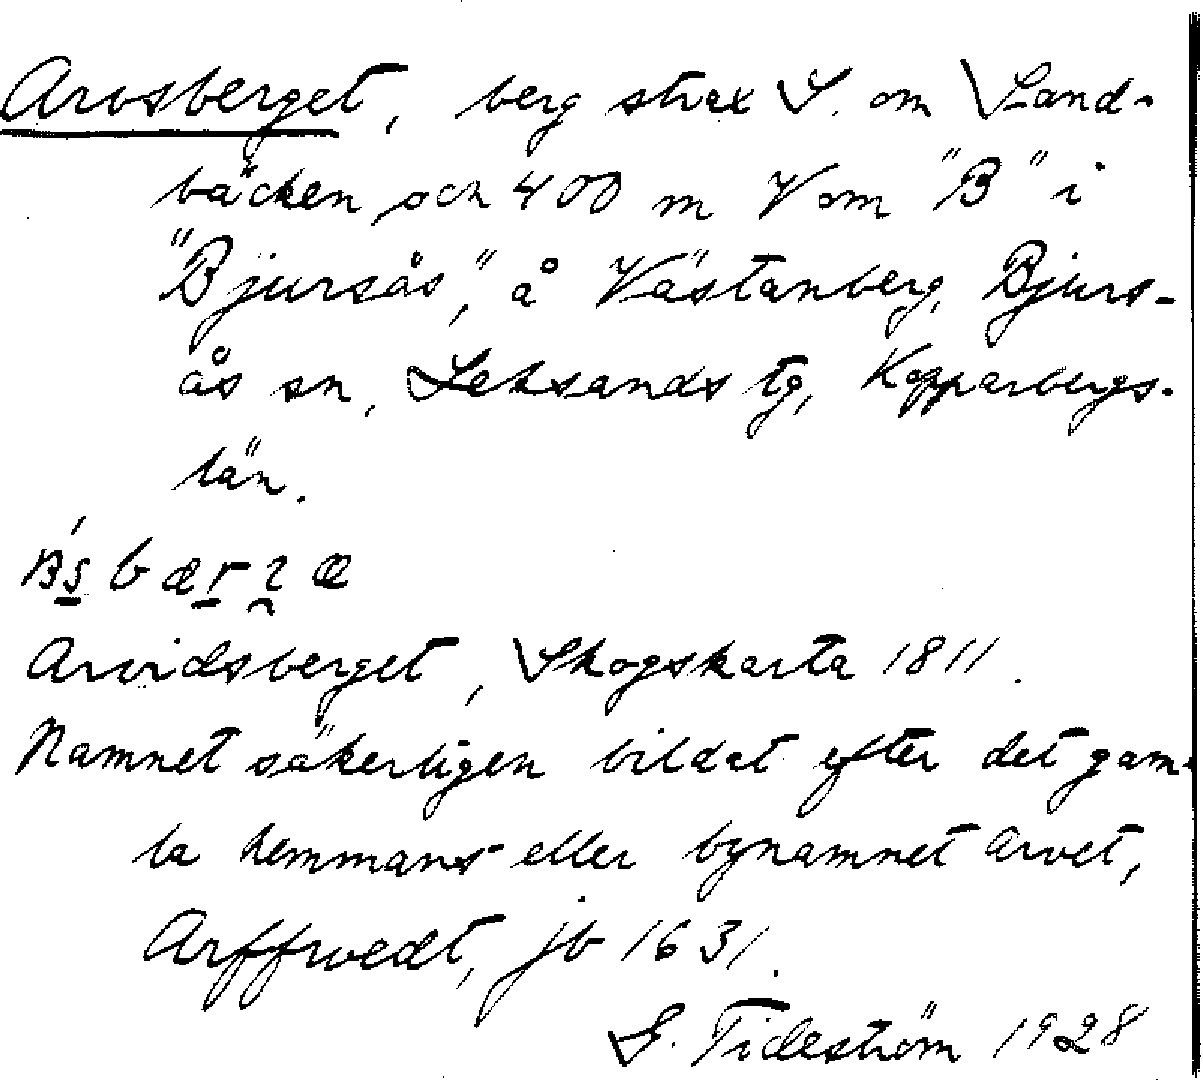 Arvsberget, berg strax S. om Sand-
bäcken och 400 m V om "B" i
"Bjursås", å Västanberg, Bjurs-
ås sn, Leksands tg, Kopparbergs.
län.
Arvidsberget, Skogskarta 1811.
Namnet säkerligen bildat efter det gam-
la hemmans- eller bynamnet Arvet,
Arffwedt, jb 1631.
G. Tideström 1928